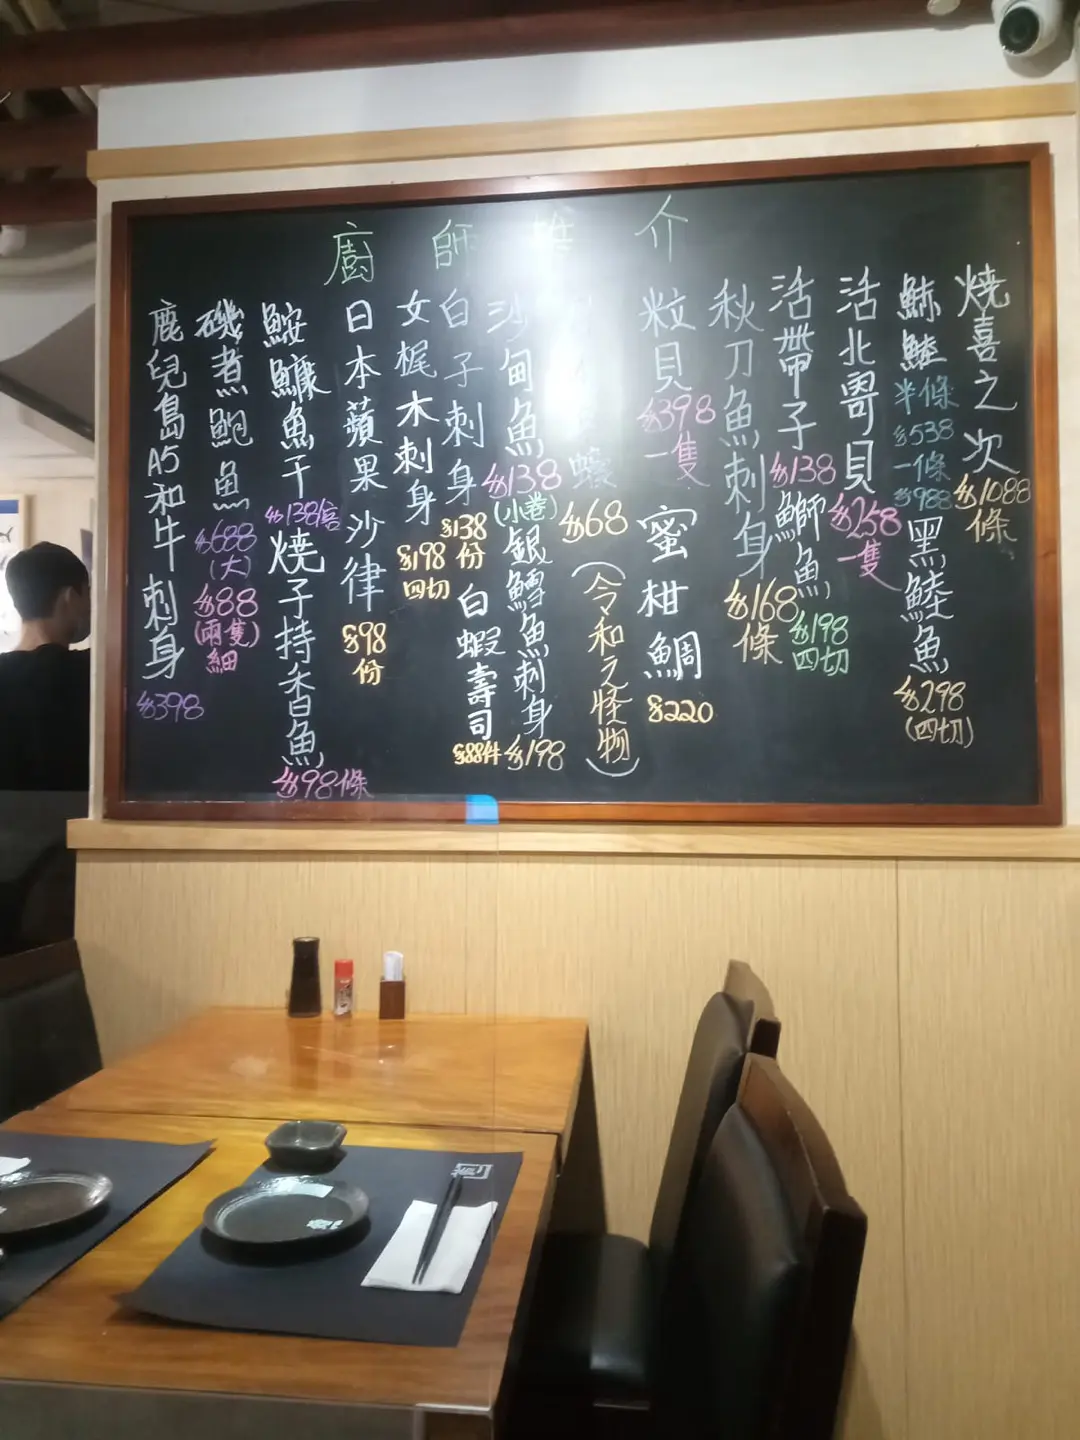 廚師推介
燒喜之次
$1088
條
鮢鯥
半條
$538
一條
$988
黑鯥魚
$298
(四切)
活北寄貝
$258
一隻
活帶子
$138
鰤魚
$198
四切
秋刀魚刺身
$168
條
粒貝
$398
一隻
蜜柑鯛
$220
蠔
$68
(令和之怪物)
沙甸魚
$138
(小卷)
銀鱈魚刺身
$198
白子刺身
$138
份
白蝦壽司
$88件
女梶木刺身
$198
四切
日本蘋果沙律
$98
份
鮟鱇魚干
$138/客
燒子持香魚
$98條
磯煮鮑魚
$688
(大)
$88
(兩隻)
細
鹿兒島A5和牛刺身
$398